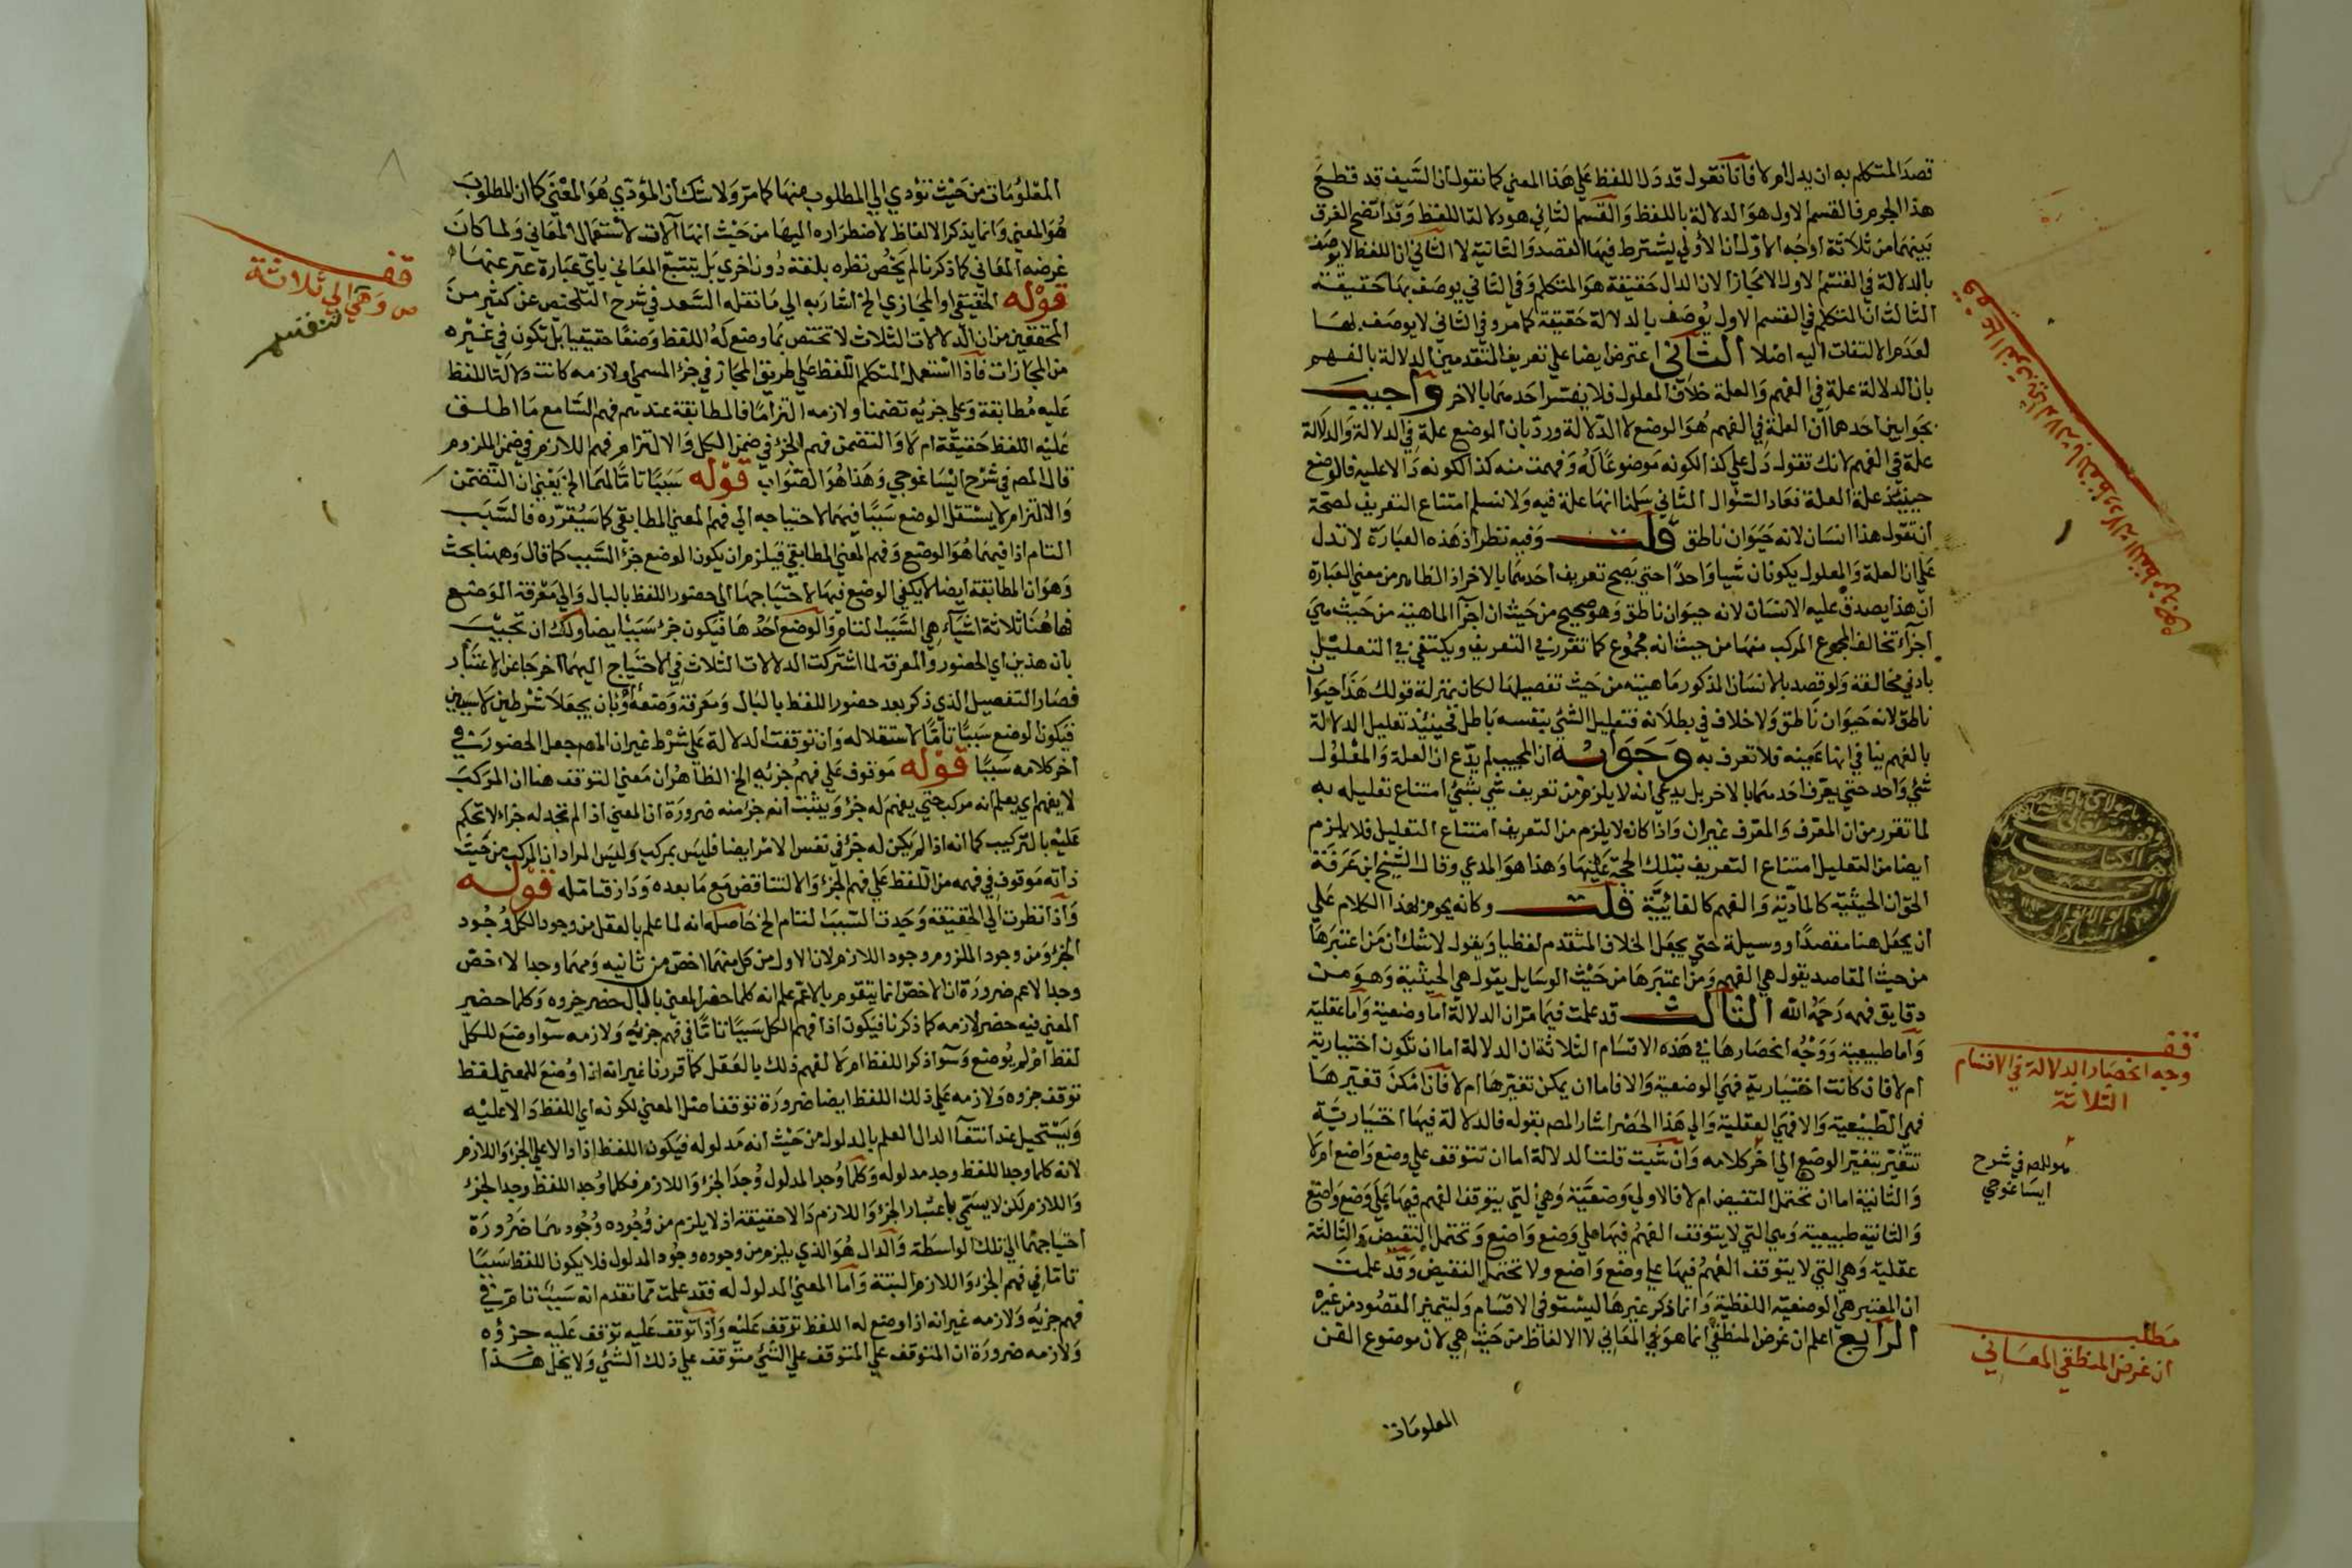 قصد المتكلم به ان يدل ام لا فانا نقول قد دل اللفظ علي هذا المعني كما نقول ان السيف قد قطع
هذا الجرم فالقسم الاول هو الدلالة باللفظ والقسم الثاني هو دلالة اللفظ وقد اتضح الفرق
بينهما من ثلاثة اوجه الاول ان الاولي يشترط فيها القصد والثانية لا الثاني ان اللفظ لا يوصف
بالدلالة في القسم الاول الا مجازا لان الدال حقيقة هو المتكلم وفي الثاني يوصف بها حقيقة
الثالث ان المتكلم في القسم الاول يوصف بالدلالة حقيقة كما مر وفي الثاني لا يوصف بها
لعدم الالتفات اليه اصلا الثاني اعترض ايضا علي تعريف المتقدمين الدلالة بالفهم
بان الدلالة علة في الفهم والعلة خلاف المعلول فلا يفسر احدهما بالاخر واجيب
بجوابين احدهما ان العلة في الفهم هو الوضع لا الدلالة ورد بان الوضع علة في الدلالة والدلالة
علة في الفهم لانك تقول دل علي كذا لكونه موضوعا له وفهمت منه كذا لكونه دالا عليه فالوضع
حينئذ علة العلة فعاد السؤال الثاني سلمنا انها علة فيه ولا نسلم امتناع التعريف لصحة
ان تقول هذا انسان لانه حيوان ناطق قلت وفيه نظر اذ هذه العبارة لا تدل
علي ان العلة والمعلول يكونان شيا واحدا حتي يصح تعريف احدهما بالاخر اذ الظاهر من معني العبارة
ان هذا يصدق عليه الانسان لانه حيوان ناطق وهو صحيح من حيث ان اجزا الماهية من حيث هي
اجزآء تخالف المجموع المركب منها من حيث انه مجموع كما تقرر في التعريف ويكتفي في التعليل
بادني مخالفة ولو قصد بالانسان المذكور ماهيته من حيث تفصيلها لكان بمنزلة قولك هذا حيوان
ناطق لانه حيوان ناطق ولا خلاف في بطلانه فتعليل الشئ بنفسه باطل فحينئذ تعليل الدلالة
بالفهم ينافي انها عينه فلا تعرف به وجوابه ان المجيب لم يدع ان العلة والمعلول
شئ واحد حتي يعرف احدهما بالاخر بل يدعي انه لا يلزم من تعريف شي بشئ امتناع تعليله به
لما تقرر من ان المعرف والمعرف غيران واذا كان لا يلزم من التعريف امتناع التعليل فلا يلزم
ايضا من التعليل امتناع التعريف بتلك الحجة عليها وهذا هو المدعي وقال الشيخ ابن عرفة
الحق ان الحيثية كالمادية والفهم كالغائية قلت وكانه يحوم بهذا الكلام علي
ان يجعل هنا مقصدا ووسيلة حتي يجعل الخلاف المتقدم لفظيا ويقول لا شك ان من اعتبرها
من حيث المقاصد يقول هي الفهم ومن اعتبرها من حيث الوسايل يقول هي الحيثية وهو من
دقايق فهمه رحمه الله الثالث قد علمت فيما مر ان الدلالة اما وضعية واما عقلية
واما طبيعية ووجه انحصارها في هذه الاقسام الثلاثة ان الدلالة اما ان تكون اختيارية
ام لا فان كانت اختيارية فهي الوضعية والا فاما ان يمكن تغيرها ام لا فان امكن تغيرها
فهي الطبيعية والا فهي العقلية والي هذا الحصر اشار المص بقوله فالدلالة فيها اختيارية
تتغير بتغير الوضع الي اخر كلامه وان شيت قلت الدلالة اما ان تتوقف علي وضع واضع ام لا
والثانية اما ان تحتمل النقيض ام لا فالاولي وضعية وهي التي يتوقف الفهم فيها علي وضع واضع
والثانية طبيعية وهي التي لا يتوقف الفهم فيها علي وضع واضع وتحتمل النقيض والثالثة
عقلية وهي التي لا يتوقف الفهم فيها علي وضع واضع ولا تحتمل النقيض وقد علمت
ان المعتبر هي الوضعية اللفظية وانما ذكر غيرها ليستوفي الاقسام وليتميز المقصود من غيره
الرابع اعلم ان غرض المنطقي انما هو في المعاني لا الالفاظ من حيث هي لان موضوع الفن
المعلومات
قف
وجه انحصار الدلالة في الاقسام
الثلاثة
هو للمص في شرح
ايساغوجي
مطلب
ان غرض المنطقي المعاني
المعلومات من حيث تؤدي الي المطلوب منها كما مر ولا شك ان المؤدي هو المعني كما ان المطلوب
هو المعني وانما يذكر الالفاظ لاضطراره اليها من حيث انها آلات لاستعمال المعاني ولما كان
غرضه المعاني كما ذكرنا لم يخص نظره بلغة دون اخري بل يتتبع المعاني باي عبارة عبر عنها
قوله الحقيقي او المجازي الخ اشار به الي ما نقله السعد في شرح التلخيص عن كثير من
المحققين من ان الدلالات الثلاث لا تختص بما وضع له اللفظ وضعا حقيقيا بل تكون في غيره
من المجازات فاذا استعمل المتكلم اللفظ علي طريق المجاز في جزء المسمي او لازمه كانت دلالة اللفظ
عليه مطابقة وعلي جزيه تضمنا ولازمه التزاما فالمطابقة عندهم فهم السامع ما اطلق
عليه اللفظ حقيقة ام لا والتضمن فهم الجزء في ضمن الكل والالتزام فهم اللازم في ضمن الملزوم
قال المص في شرح ايساغوجي وهذا هو الصواب قوله سببا تاما لهما الخ يعني ان التضمن
والالتزام لا يستقل الوضع سببا فيهما لاحتياجه الي فهم المعني المطابقي كما سيقرره فالسبب
التام اذا فيهما هو الوضع وفهم المعني المطابقي فيلزم ان يكون الوضع جزء السبب كما قال وههنا بحث
وهو ان المطابقة ايضا لا يكفي الوضع فيها لاحتياجها الي حضور اللفظ بالبال والي معرفة الوضع
فها هنا ثلاثة اشيآء هي السبب التام والوضع احدها فيكون جزء سبب ايضا ولك ان تجيب
بان هذين اي الحضور والمعرفة لما اشتركت الدلالات الثلاث في الاحتياج اليهما اخرجا عن الاعتبار
فصار التفصيل الذي ذكر بعد حضور اللفظ بالبال ومعرفة وضعه او بان يجعلا شرطين لا سببين
فيكون الوضع سببا تاما لاستقلاله وان توقفت الدلالة علي شرط غير ان المص جعل الحضور في
اخر كلامه سببا قوله موقوف علي فهم جزئيه الخ الظاهر ان معني التوقف هنا ان المركب
لا يفهم اي يعلم انه مركب حتي يفهم له جزء ويثبت انه جزء منه ضرورة ان المعني اذا لم تجد له جزا لا تحكم
عليه بالتركيب كما انه اذا لم يكن له جزء في نفس الامر ايضا فليس بمركب وليس المراد ان المركب من حيث
ذاته موقوف في فهمه من اللفظ علي فهم الجزء والا لتناقض مع ما بعده قوله
واذا نظرت الي الحقيقة وجدت السبب التام الخ حاصله انه لما علم بالعقل من وجود الكل وجود
الجزء ومن وجود الملزوم وجود اللازم لان الاول من كل منهما اخص من ثانيه ومهما وجد الاخص
وجد الاعم ضرورة ان الاخص انما يتقوم بالاعم علم انه كلما حضر المعني بالبال حضر جزوه وكلما حضر
المعني فيه حضر لازمه كما ذكرنا فيكون اذا فهم الكل سببا تاما في فهم جزئيه ولازمه سوآ وضع للكل
لفظ ام لم يوضع وسوآ ذكر اللفظ ام لا لفهم ذلك بالعقل كما قررنا غير انه اذا وضع للمعني لفظ
توقف جزوه ولازمه علي ذلك اللفظ ايضا ضرورة توقف اصل المعني لكونه اي اللفظ دالا عليه
ويستحيل عند انتفآ الدال العلم بالمدلول من حيث انه مدلوله فيكون اللفظ اذا دالا علي الجزء واللازم
لانه كلما وجد اللفظ وجد مدلوله وكلما وجد المدلول وجد الجزء واللازم فكلما وجد اللفظ وجد الجزء
واللازم لكن لا يسمي باعتبار الجزء واللازم دالا حقيقة اذ لا يلزم من وجوده وجودهما ضرورة
احتياجهما الي تلك الواسطة والدال هو الذي يلزم من وجوده وجود المدلول فلا يكون اللفظ سببا
تاما في فهم الجزء واللازم البتة واما المعني المدلول له فقد علمت مما تقدم انه سبب تام في
فهم جزئيه ولازمه غير انه اذا وضع له اللفظ توقف عليه واذا توقف عليه توقف عليه جزؤه
ولازمه ضرورة ان المتوقف علي المتوقف علي الشئ متوقف علي ذلك الشئ ولا يخل هذا
قف
وهي الي ثلاثة
تنقسم